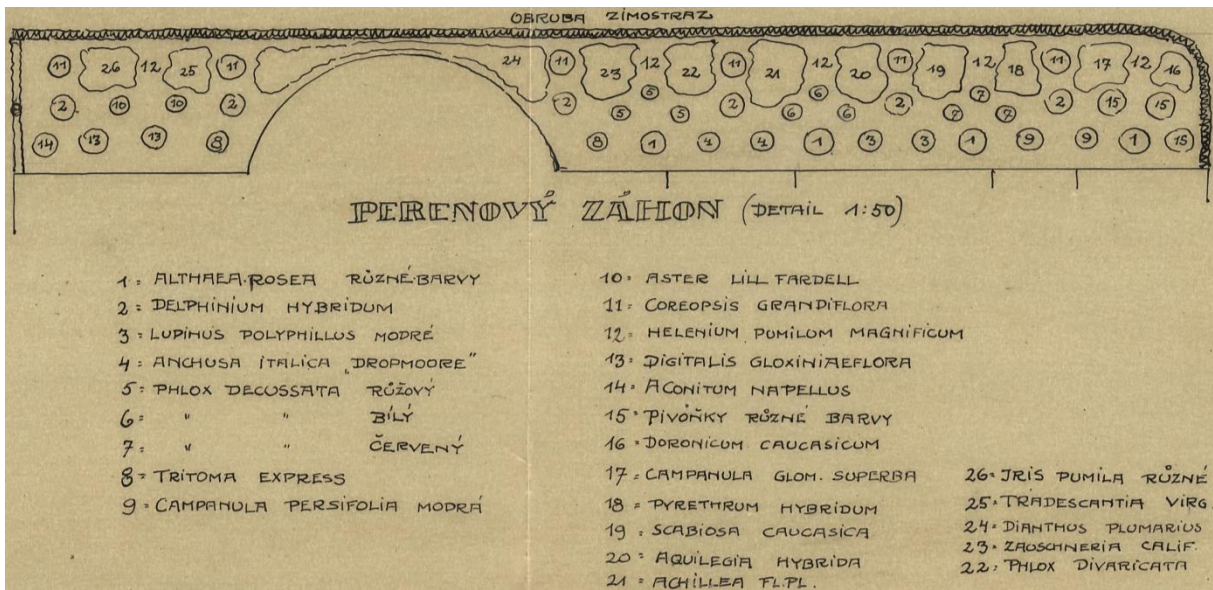 OBRUBA ZIMOSTRAZ
11 26 12 25 11 24 11 23 12 22 11 21 12 20 11 19 12 18 11 17 12 16
2 10 10 2 2 5 6 5 2 6 6 6 2 7 7 7 2 15 15
14 13 13 8 8 1 4 4 1 3 3 1 9 9 1 15
PERENOVÝ ZÁHON (DETAIL 1:50)
1 = ALTHAEA ROSEA RŮZNÉ BARVY
2 = DELPHINIUM HYBRIDUM
3 = LUPINUS POLYPHILLUS MODRÉ
4 = ANCHUSA ITALICA „DROPMOORE"
5 = PHLOX DECUSSATA RŮŽOVÝ
6 = " " BÍLÝ
7 = " " ČERVENÝ
8 = TRITOMA EXPRESS
9 = CAMPANULA PERSIFOLIA MODRÁ
10 = ASTER LILL FARDELL
11 = COREOPSIS GRANDIFLORA
12 = HELENIUM PUMILUM MAGNIFICUM
13 = DIGITALIS GLOXINIAEFLORA
14 = ACONITUM NAPELLUS
15 = PIVOŇKY RŮZNÉ BARVY
16 = DORONICUM CAUCASICUM
17 = CAMPANULA GLOM. SUPERBA
18 = PYRETHRUM HYBRIDUM
19 = SCABIOSA CAUCASICA
20 = AQUILEGIA HYBRIDA
21 = ACHILLEA FL. PL.
26 = IRIS PUMILA RŮZNÉ
25 = TRADESCANTIA VIRG
24 = DIANTHUS PLUMARIUS
23 = ZAUSCHNERIA CALIF.
22 = PHLOX DIVARICATA